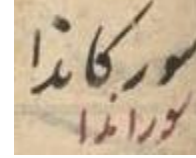 سورکاندا
سوراندا